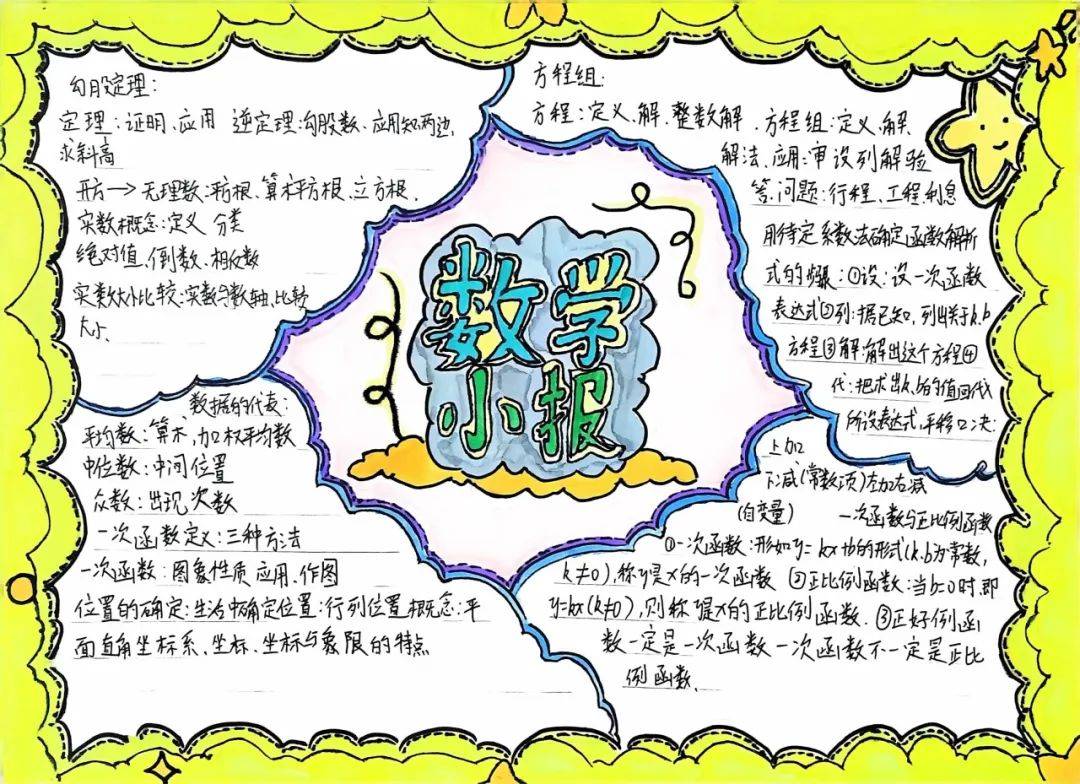 勾股定理：
定理：证明、应用 逆定理：勾股数、应用知两边
求斜高
开方→无理数：平方根、算术平方根、立方根.
实数概念：定义 分类
绝对值，倒数、相反数
实数大小比较：实数与数轴，比较
大小.
方程组：
方程：定义、解、整数解、方程组：定义、解、
解法、应用：审设列解验
答、问题：行程、工程利息
用待定系数法确定函数解析
式的步骤：①设：设一次函数
表达式②列：据已知，列出关于k.b
方程③解：解出这个方程④
代：把求出k,b的值回代
所设表达式，平移口决：
上加
下减(常数项)左加右减
(自变量)
数学
小报
数据的代表：
平均数：算术，加权平均数
中位数：中间位置
众数：出现次数
一次函数定义：三种方法
一次函数：图象性质应用、作图
位置的确定：生活中确定位置：行列位置概念：平
面直角坐标系、坐标、坐标与象限的特点
一次函数与正比例函数
①一次函数：形如y=kx+b的形式(k.b为常数，
k≠0)，称y是x的一次函数 ②正比例函数：当b=0时，即
y=kx(k≠0)，则称y是x的正比例函数．③正好例函
数一定是一次函数一次函数不一定是正比
例函数、